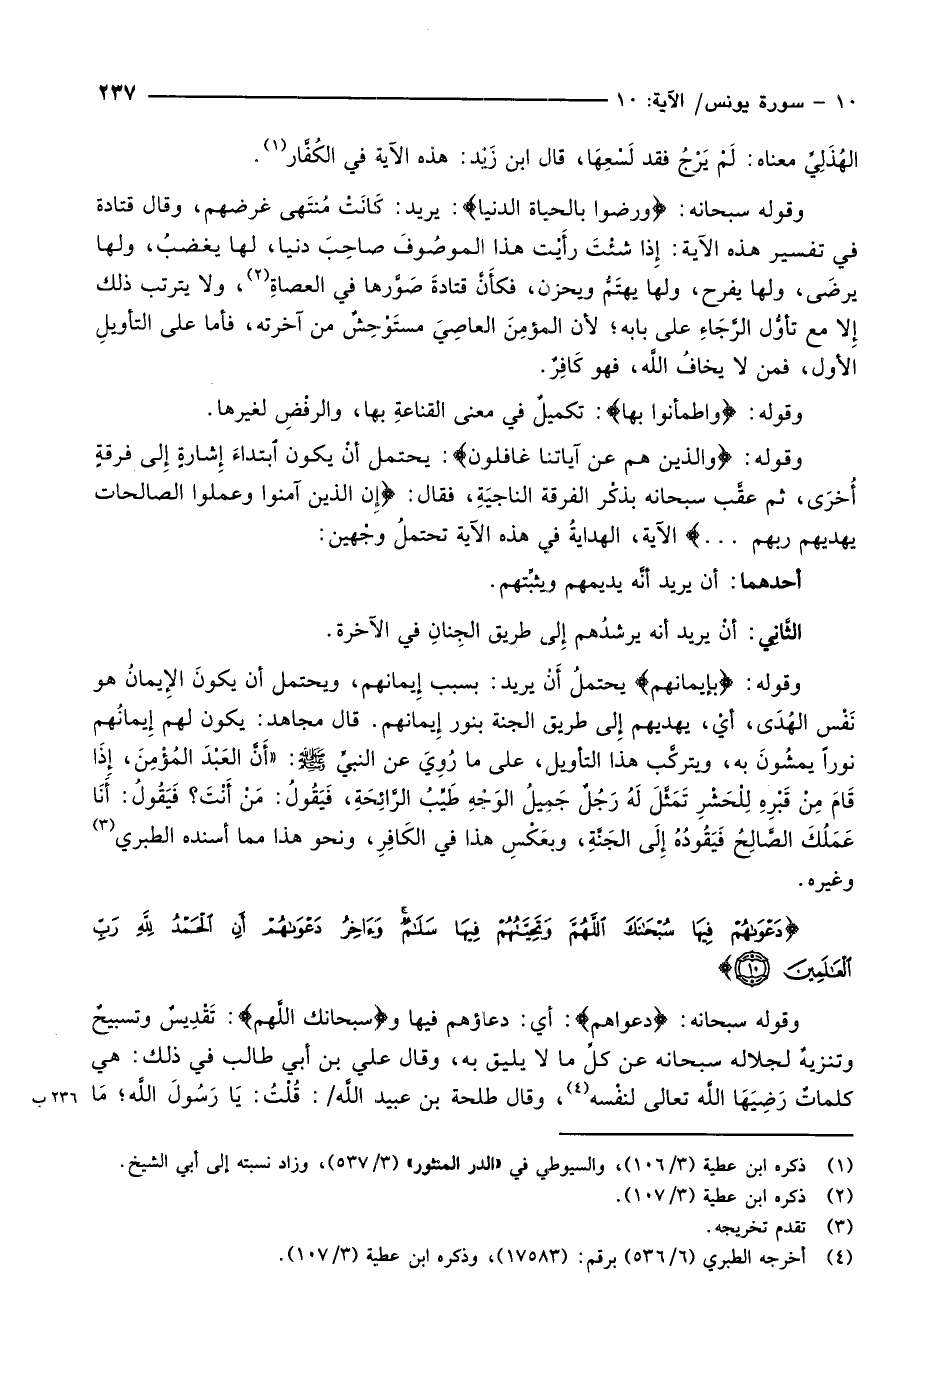 ١٠ - سورة يونس/ الآية: ١٠ ٢٣٧
الهُذَلِيِّ معناه: لَمْ يَرْجُ فقد لَسْعِهَا، قال ابن زَيْد: هذه الآية في الكُفَّار(١).
وقوله سبحانه: ﴿ورضوا بالحياة الدنيا﴾: يريد: كَانَتْ مُنتَهى غرضهم، وقال قتادة
في تفسير هذه الآية: إِذا شئْتَ رأَيْت هذا الموصُوفَ صاحِبَ دنيا، لها يغضبُ، ولها
يرضَى، ولها يفرح، ولها يهتَمُّ ويحزن، فكأَنَّ قتادةَ صَوَّرها في العصاةِ(٢)، ولا يترتب ذلك
إلا مع تأوُّل الرَّجَاءِ على بابه؛ لأن المؤمِنَ العاصِيَ مستَوْحِشٌ من آخرته، فأما على التأويلِ
الأول، فمن لا يخافُ اللَّه، فهو كَافِرٌ.
وقوله: ﴿واطمأنوا بها﴾: تكميلٌ في معنى القناعةِ بها، والرفْضِ لغيرها.
وقوله: ﴿والذين هم عن آياتنا غافلون﴾: يحتمل أنْ يكون ٱبتداءَ إِشارةٍ إِلى فرقةٍ
أُخرَى، ثم عقَّب سبحانه بذكْر الفرقة الناجيَةِ، فقال: ﴿إن الذين آمنوا وعملوا الصالحات
يهديهم ربهم ...﴾ الآية، الهدايةُ في هذه الآية تحتملُ وجْهين:
أحدهما: أن يريد أنَّه يديمهم ويثبِّتهم.
الثَّانِي: أنْ يريد أنه يرشدُهم إِلى طريق الجِنانِ في الآخرة.
وقوله: ﴿بإيمانهم﴾ يحتملُ أَنْ يريد: بسبب إِيمانهم، ويحتمل أن يكونَ الإِيمانُ هو
نَفْس الهُدَى، أيْ، يهديهم إِلى طريق الجنة بنور إيمانهم. قال مجاهد: يكون لهم إِيمانُهم
نوراً يمشُونَ به، ويتركَّب هذا التأويل، على ما رُوِيَ عن النبيِّ ﷺ: «أَنَّ العَبْدَ المُؤْمِنَ، إِذَا
قَامَ مِنْ قَبْرِهِ لِلْحَشْرِ تَمَثَّلَ لَهُ رَجُلٌ جَمِيلُ الوَجْهِ طَيِّبُ الرَّائِحَةِ، فَيَقُولُ: مَنْ أَنْتَ؟ فَيَقُولُ: أَنَا
عَمَلُكَ الصَّالِحُ فَيَقُودُهُ إِلَى الجَنَّةِ، وبعَكْسِ هذا في الكَافِرِ، ونحو هذا مما أسنده الطبري(٣)
وغيره.
﴿دَعْوَىٰهُمْ فِيهَا سُبْحَٰنَكَ ٱللَّهُمَّ وَتَحِيَّتُهُمْ فِيهَا سَلَٰمٌۚ وَءَاخِرُ دَعْوَىٰهُمْ أَنِ ٱلْحَمْدُ لِلَّهِ رَبِّ
ٱلْعَٰلَمِينَ ١٠﴾
وقوله سبحانه: ﴿دعواهم﴾: أي: دعاؤهم فيها و﴿سبحانك اللَّهم﴾: تَقْدِيسٌ وتسبيحٌ
وتنزيهٌ لجلاله سبحانه عن كلِّ ما لا يليق به، وقال علي بن أبي طالب في ذلك: هي
كلماتٌ رَضِيَهَا اللَّه تعالى لنفْسه(٤)، وقال طلحة بن عبيد اللَّه/: قُلْتُ: يَا رَسُولَ اللَّه؛ مَا ٢٣٦ ب
(١) ذكره ابن عطية (٣/ ١٠٦)، والسيوطي في «الدر المنثور» (٣/ ٥٣٧)، وزاد نسبته إلى أبي الشيخ.
(٢) ذكره ابن عطية (٣/ ١٠٧).
(٣) تقدم تخريجه.
(٤) أخرجه الطبري (٦/ ٥٣٦) برقم: (١٧٥٨٣)، وذكره ابن عطية (٣/ ١٠٧).